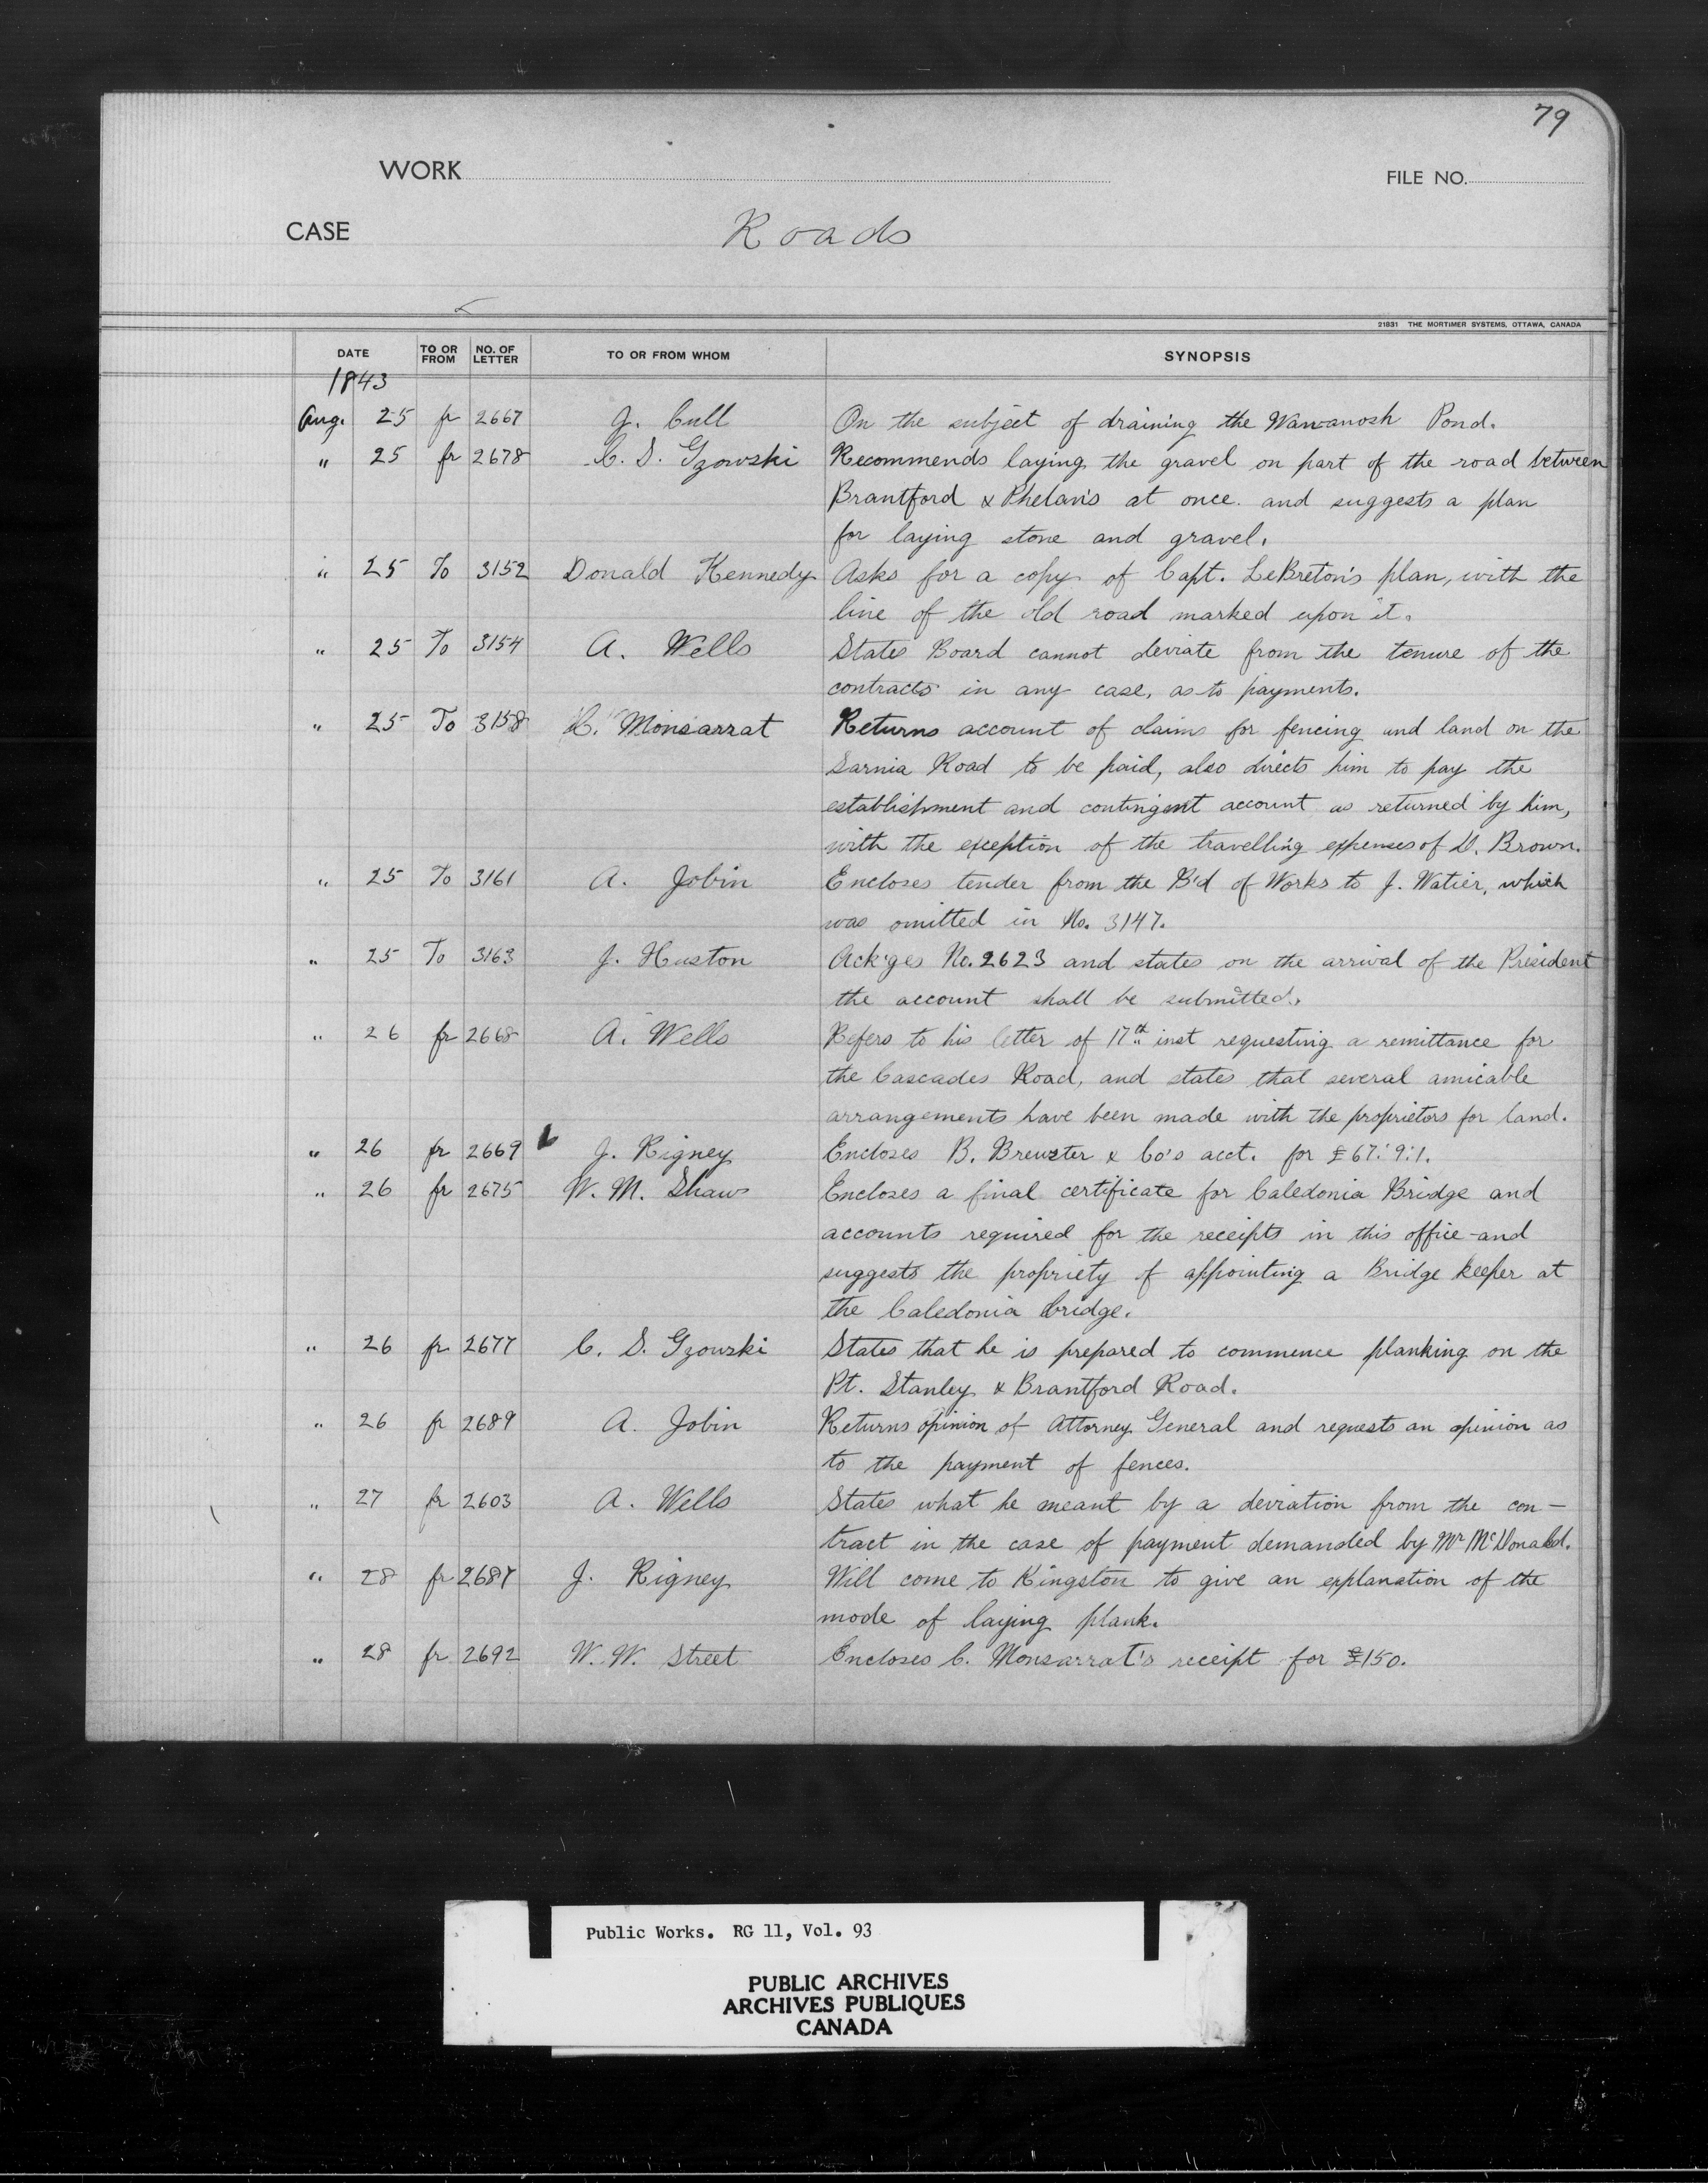 79
WORK
FILE NO.
CASE Roads
21831 THE MORTIMER SYSTEMS, OTTAWA, CANADA
DATE TO OR FROM NO. OF LETTER TO OR FROM WHOM SYNOPSIS
1843
Aug. 25 fr 2667 J. Cull On the subject of draining the Wawanosh Pond.
" 25 fr 2678 C. S. Gzowski Recommends laying the gravel on part of the road between
Brantford & Phelan's at once. and suggests a plan
for laying stone and gravel.
" 25 To 3152 Donald Kennedy Asks for a copy of Capt. LeBreton's plan, with the
line of the old road marked upon it.
" 25 To 3154 A. Wells States Board cannot deviate from the tenure of the
contracts in any case, as to payments.
" 25 To 3158 C. Monsarrat Returns account of claims for fencing and land on the
Sarnia Road to be paid, also directs him to pay the
establishment and contingent account as returned by him,
with the exception of the travelling expenses of D. Brown.
" 25 To 3161 A. Jobin Encloses tender from the B'd of Works to J. Watier, which
was omitted in No. 3147.
" 25 To 3163 J. Huston Ack'ges No. 2623 and states on the arrival of the President
the account shall be submitted.
" 26 fr 2668 A. Wells Refers to his letter of 17th inst requesting a remittance for
the Cascades Road, and states that several amicable
arrangements have been made with the proprietors for land.
" 26 fr 2669 J. Rigney Encloses B. Brewster & Co's acct. for £67:9:1.
" 26 fr 2675 W. M. Shaw Encloses a final certificate for Caledonia Bridge and
accounts required for the receipts in this office - and
suggests the propriety of appointing a Bridge keeper at
the Caledonia bridge.
" 26 fr 2677 C. S. Gzowski States that he is prepared to commence planking on the
Pt. Stanley & Brantford Road.
" 26 fr 2689 A. Jobin Returns opinion of Attorney General and requests an opinion as
to the payment of fences.
" 27 fr 2603 A. Wells States what he meant by a deviation from the con-
tract in the case of payment demanded by Mr McDonald.
" 28 fr 2687 J. Rigney Will come to Kingston to give an explanation of the
mode of laying plank.
" 28 fr 2692 W. W. Street Encloses C. Monsarrat's receipt for £150.
Public Works. RG 11, Vol. 93
PUBLIC ARCHIVES
ARCHIVES PUBLIQUES
CANADA